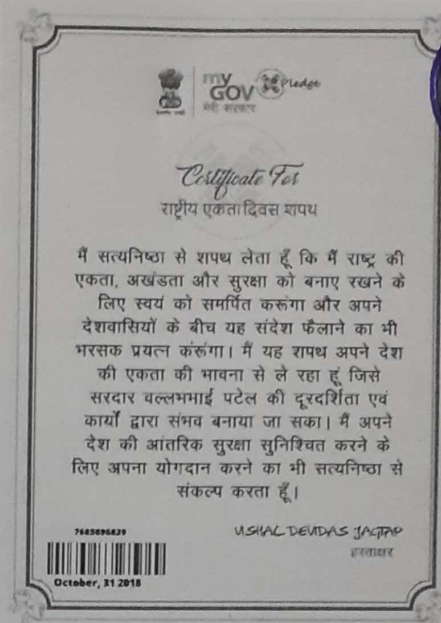 my
GOV
मेरी सरकार
Pledge
Certificate For
राष्ट्रीय एकता दिवस शपथ
मैं सत्यनिष्ठा से शपथ लेता हूँ कि मैं राष्ट्र की
एकता, अखंडता और सुरक्षा को बनाए रखने के
लिए स्वयं को समर्पित करूंगा और अपने
देशवासियों के बीच यह संदेश फैलाने का भी
भरसक प्रयत्न करूंगा। मैं यह शपथ अपने देश
की एकता की भावना से ले रहा हूं जिसे
सरदार वल्लभभाई पटेल की दूरदर्शिता एवं
कार्यों द्वारा संभव बनाया जा सका। मैं अपने
देश की आंतरिक सुरक्षा सुनिश्चित करने के
लिए अपना योगदान करने का भी सत्यनिष्ठा से
संकल्प करता हूँ।
7685696829
DEVIDAS JAGTAP
हस्ताक्षर
October, 31 2018